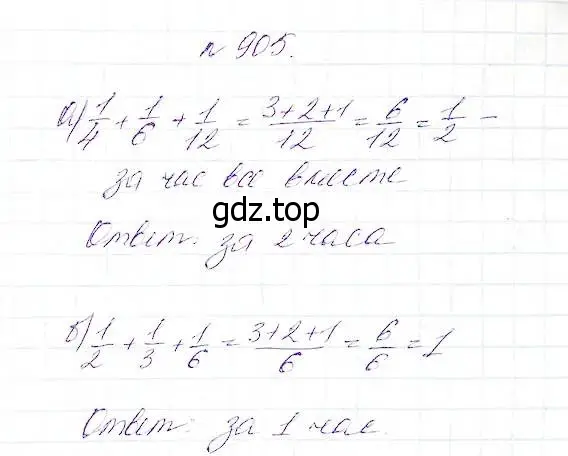 № 905.
а) 1/4 + 1/6 + 1/12 = 3+2+1/12 = 6/12 = 1/2 -
за час все вместе
gdz.top
Ответ: за 2 часа
б) 1/2 + 1/3 + 1/6 = 3+2+1/6 = 6/6 = 1
Ответ: за 1 час.